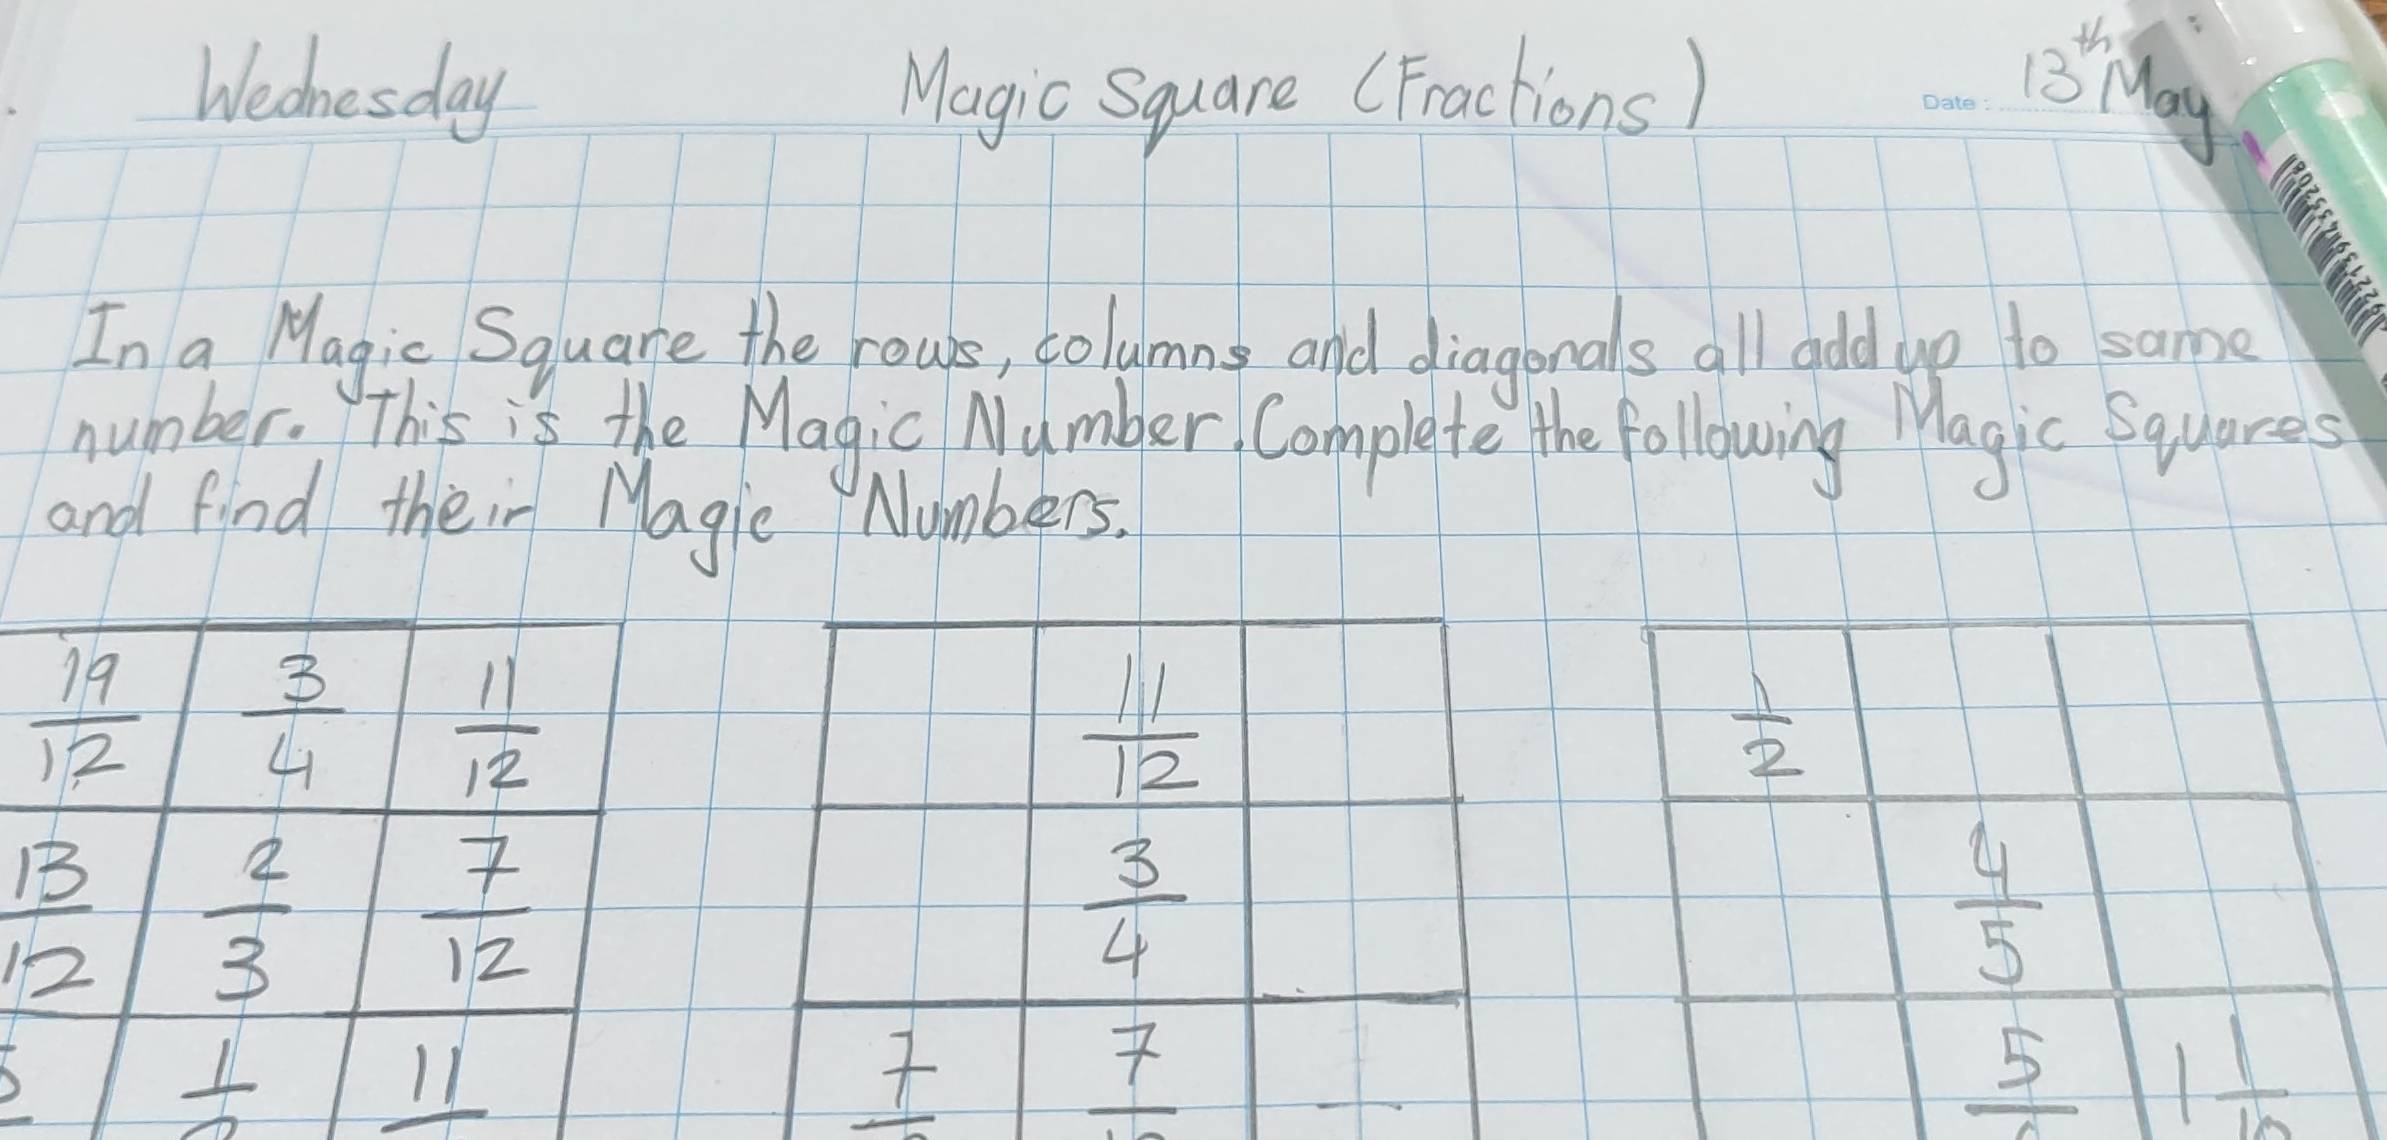 Wednesday Magic Square (Fractions) Date: 13th May
In a Magic Square the rows, columns and diagonals all add up to same
number. This is the Magic Number. Complete the following Magic Squares
and find their Magic Numbers.
19/12 3/4 11/12
13/12 2/3 7/12
1 11
11/12
3/4
7 7
1/2
4/5
5 1 1